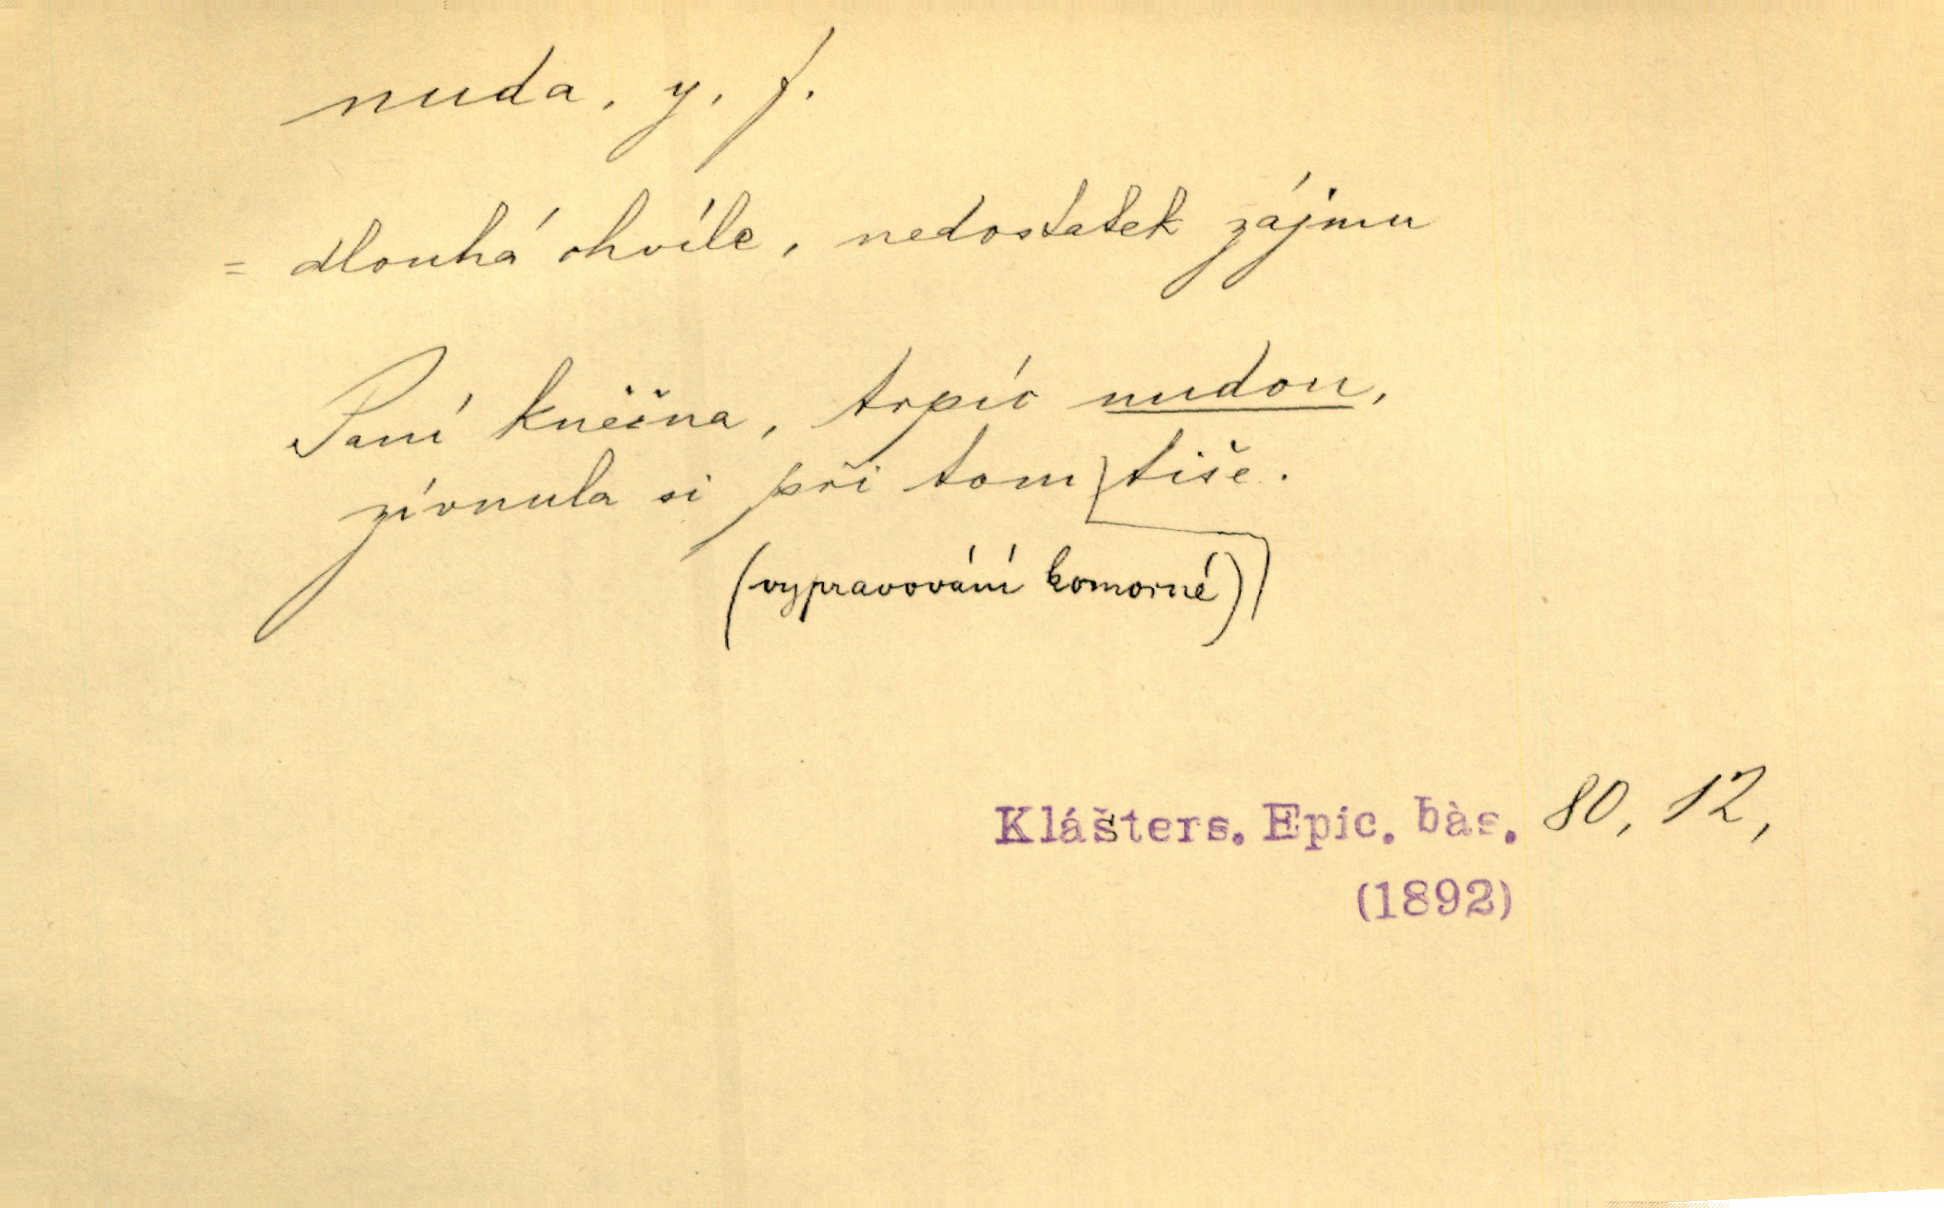 nuda, y, f.
= dlouhá chvíle, nedostatek zájmu
Paní kněžna, trpíc nudou,
zívnula si při tom tiše.
(vypravování komorné)
Klášters. Epic. bàs. 80, 12,
(1892)